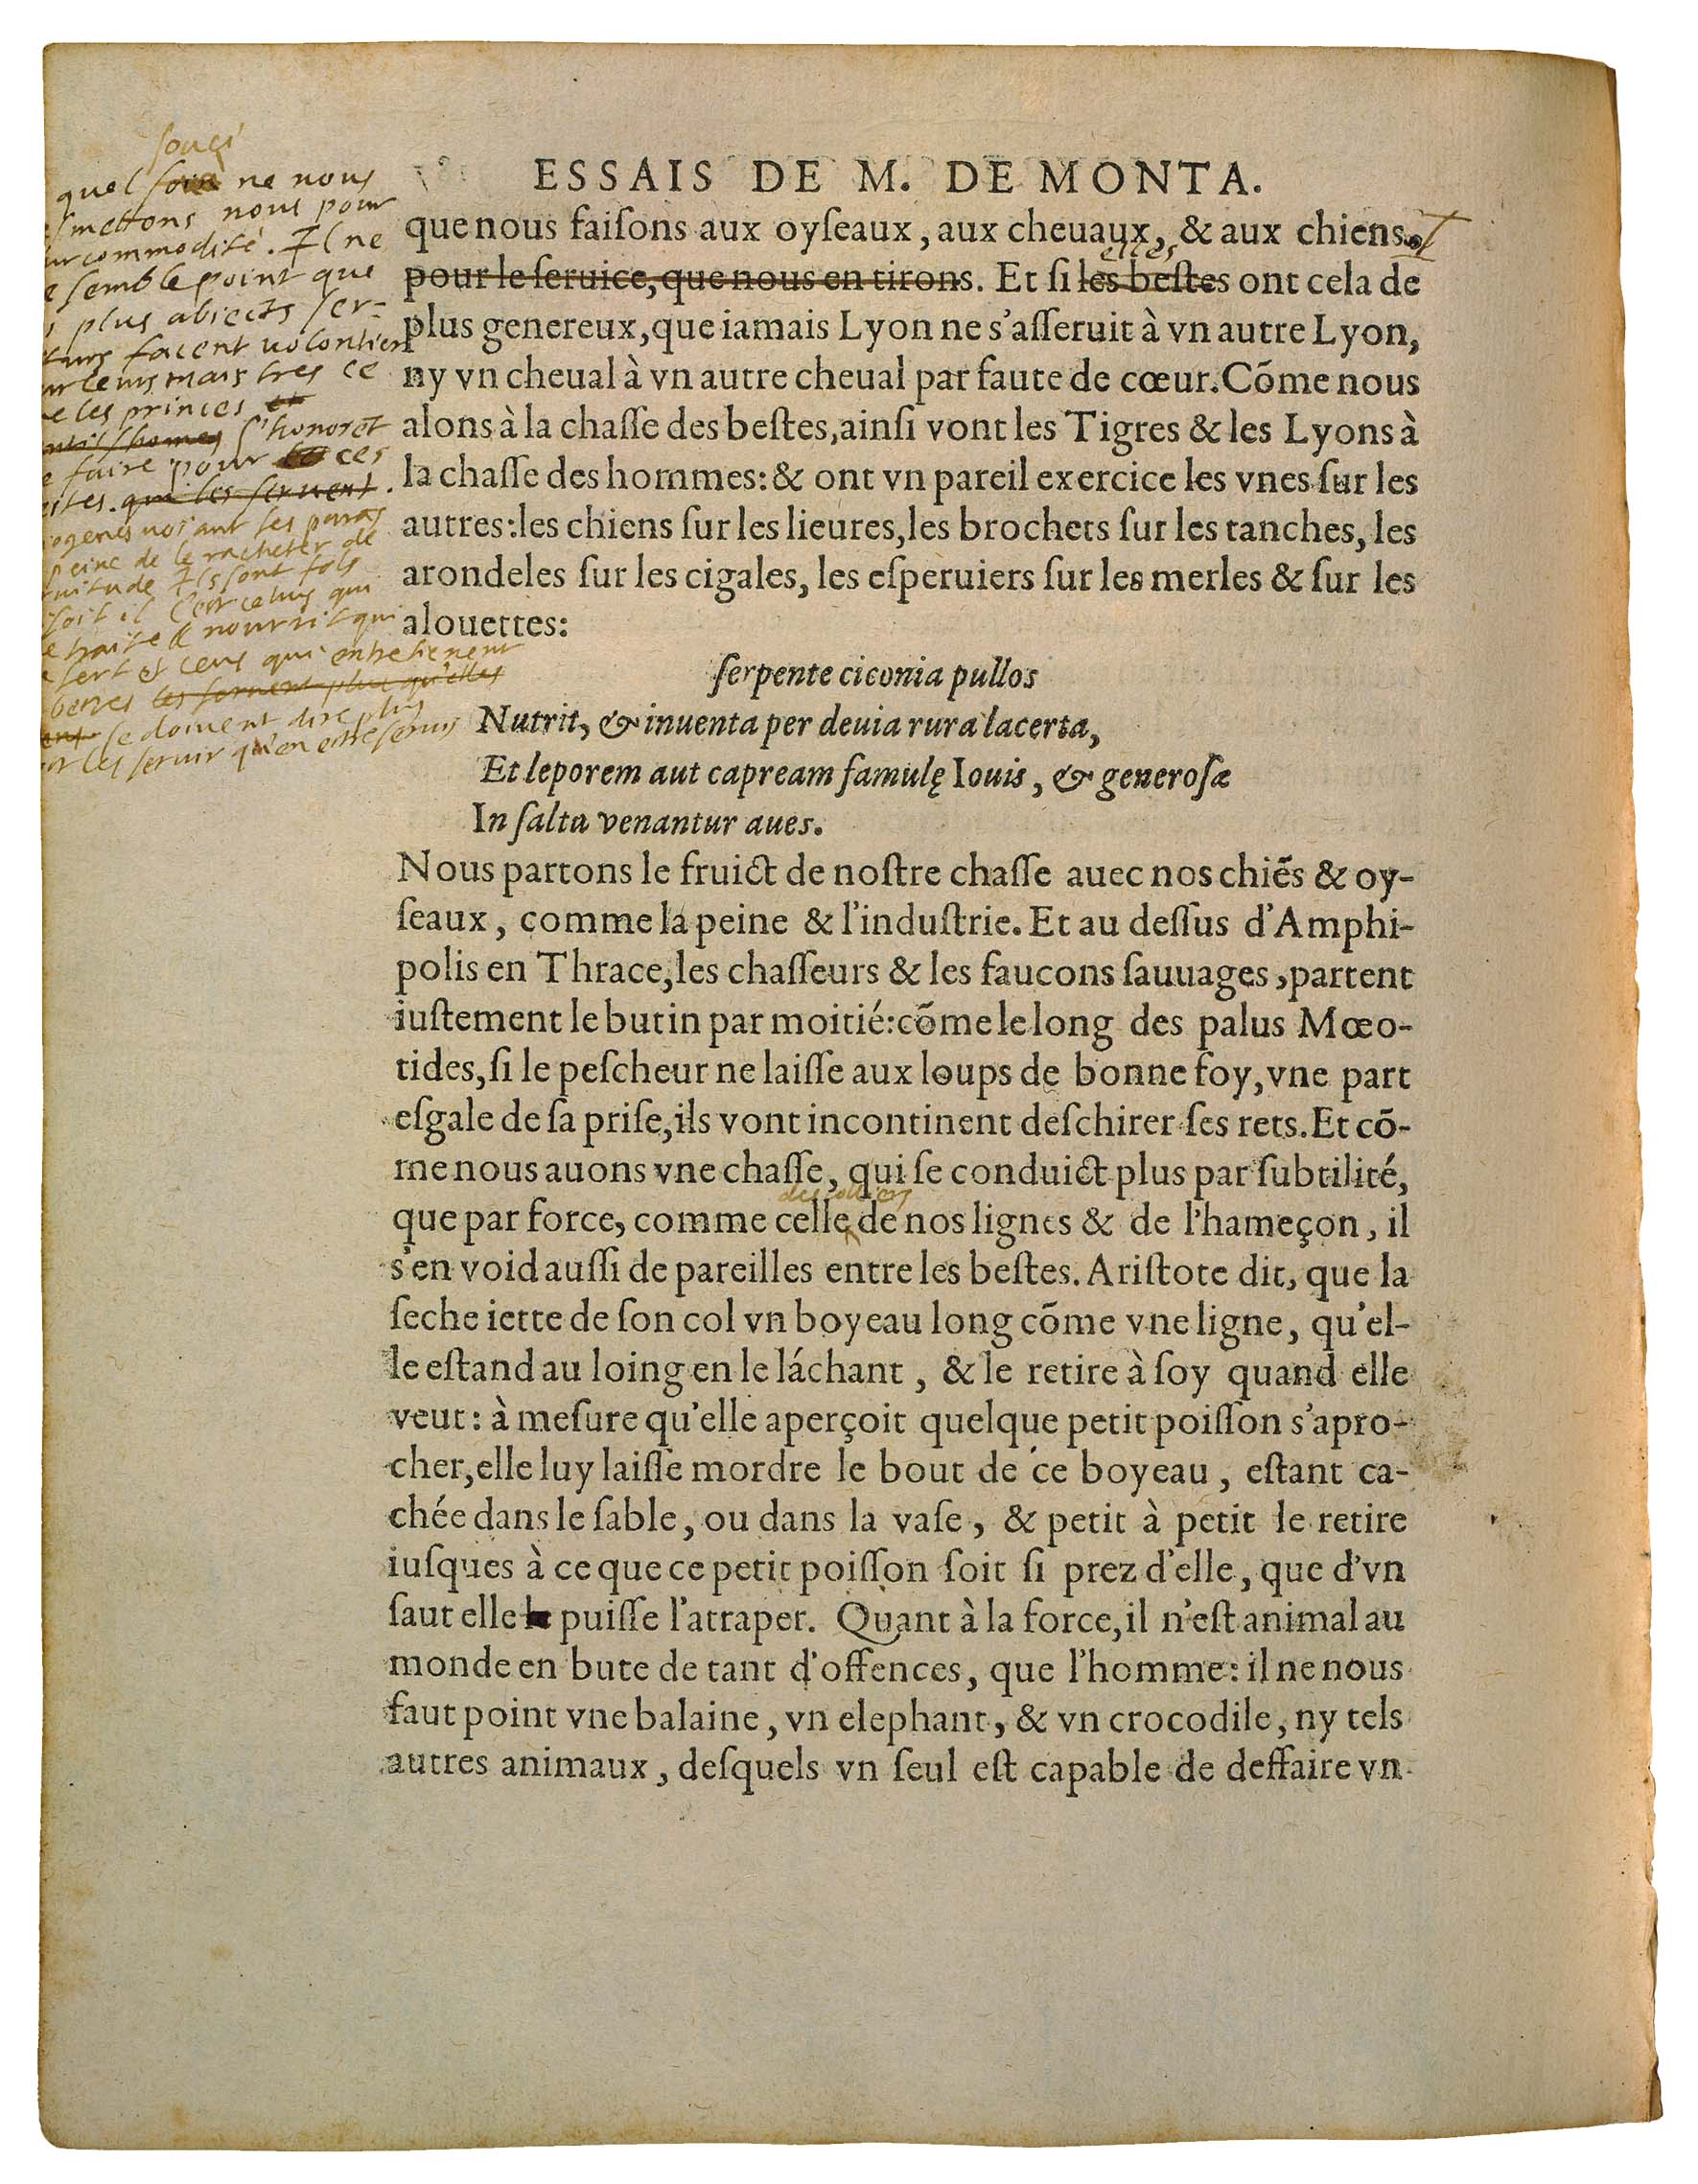 souci
quel soin ne nous
smettons nous pour
ur commodité. Il ne
e semble point que
s plus abiects ser-
turs facent volontiers
ur leurs maistres ce
e les princes et
s'honoret
e faire pour ces
stes. qui les servent.
ogenes voiant ses paras
peine de le racheter de
uitude Ils sont fols
soit il c'est celuy qui
e traite & nourrit qui
sert et ceus qui entretienent
betes les servent plus qu'elles
ent se doivent dire plus
or les servir qu'en estre servis
ESSAIS DE M. DE MONTA.
que nous faiſons aux oyſeaux, aux cheuaux, & aux chiens.
elles
pour le ſeruice, que nous en tirons. Et ſi les beſtes ont cela de
plus genereux, que iamais Lyon ne s'aſſeruit à vn autre Lyon,
ny vn cheual à vn autre cheual par faute de cœur. Cõme nous
alons à la chaſſe des beſtes, ainſi vont les Tigres & les Lyons à
la chaſſe des hommes: & ont vn pareil exercice les vnes ſur les
autres: les chiens ſur les lieures, les brochets ſur les tanches, les
arondeles ſur les cigales, les eſperuiers ſur les merles & ſur les
alouettes:
ſerpente ciconia pullos
Nutrit, & inuenta per deuia rura lacerta,
Et leporem aut capream famulę Iouis, & generoſæ
In ſaltu venantur aues.
Nous partons le fruict de noſtre chaſſe auec nos chiẽs & oy-
ſeaux, comme la peine & l'induſtrie. Et au deſſus d'Amphi-
polis en Thrace, les chaſſeurs & les faucons ſauuages, partent
iuſtement le butin par moitié: cõme le long des palus Mœo-
tides, ſi le peſcheur ne laiſſe aux loups de bonne foy, vne part
eſgale de ſa priſe, ils vont incontinent deſchirer ſes rets. Et cõ-
me nous auons vne chaſſe, qui ſe conduict plus par ſubtilité,
des colliers
que par force, comme celle de nos lignes & de l'hameçon, il
s'en void auſſi de pareilles entre les beſtes. Ariſtote dit, que la
ſeche iette de ſon col vn boyeau long cõme vne ligne, qu'el-
le eſtand au loing en le láchant, & le retire à ſoy quand elle
veut: à meſure qu'elle aperçoit quelque petit poiſſon s'apro-
cher, elle luy laiſſe mordre le bout de ce boyeau, eſtant ca-
chée dans le ſable, ou dans la vaſe, & petit à petit le retire
iuſques à ce que ce petit poiſſon ſoit ſi prez d'elle, que d'vn
ſaut elle puiſſe l'atraper. Quant à la force, il n'eſt animal au
monde en bute de tant d'offences, que l'homme: il ne nous
faut point vne balaine, vn elephant, & vn crocodile, ny tels
autres animaux, deſquels vn ſeul eſt capable de deffaire vn